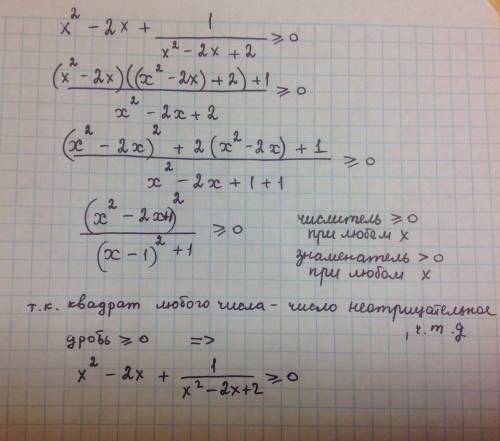 x² - 2x + 1/(x² - 2x + 2) ⩾ 0
((x² - 2x)((x² - 2x) + 2) + 1)/(x² - 2x + 2) ⩾ 0
((x² - 2x)² + 2(x² - 2x) + 1)/(x² - 2x + 1 + 1) ⩾ 0
(x² - 2x+1)²/((x - 1)² + 1) ⩾ 0
числитель ⩾ 0
при любом x
знаменатель > 0
при любом x
т.к. квадрат любого числа - число неотрицательное
, ч.т.д
дробь ⩾ 0 =>
x² - 2x + 1/(x² - 2x + 2) ⩾ 0